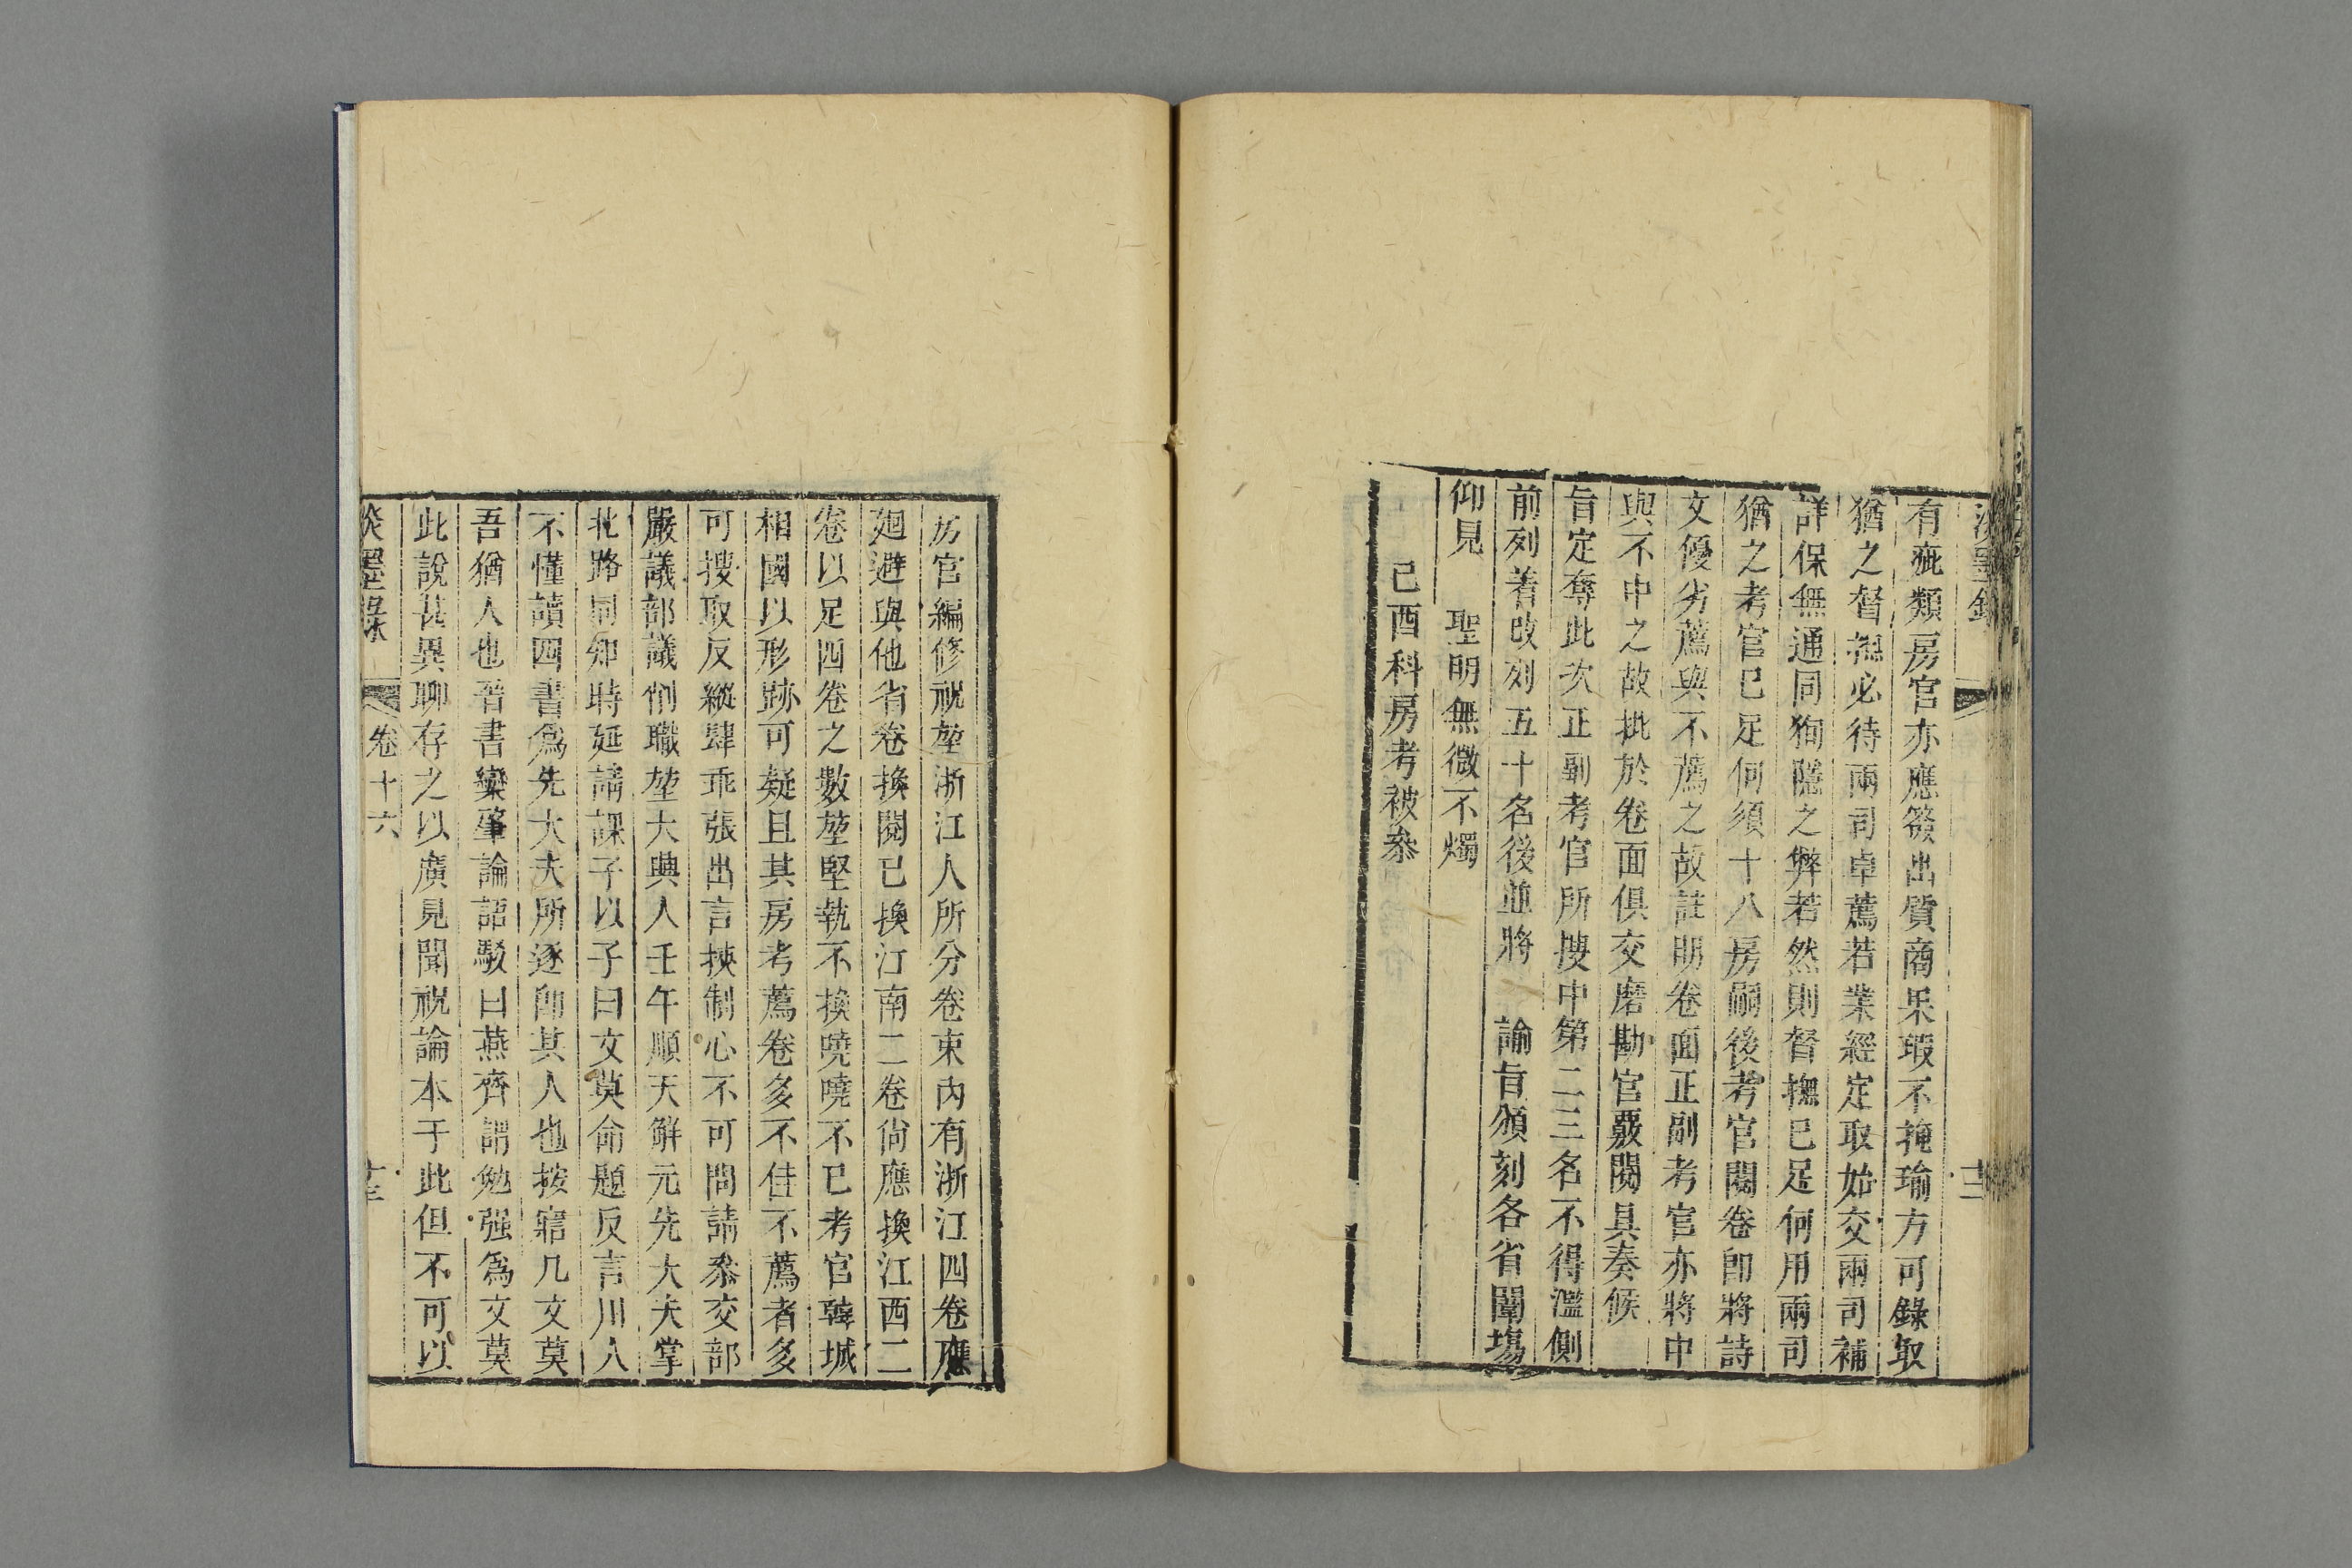 淡墨錄
十二
有疵類房官亦應簽出質商果瑕不掩瑜方可錄取
猶之督撫必待兩司卓薦若業經定取始交兩司補
詳保無通同狥隱之弊若然則督撫已足何用兩司
猶之考官已足何須十八房嗣後考官閱卷卽將詩
文優劣薦與不薦之故註明卷面正副考官亦將中
與不中之故批於卷面俱交磨勘官覈閱具奏候
旨定奪此次正副考官所搜中第二三名不得濫側
前列著改列五十名後並將 諭旨頒刻各省闈場
仰見 聖明無微不燭
己酉科房考被叅
房官編修祝堃浙江人所分卷束內有浙江四卷應
廻避與他省卷換閱已換江南二卷尙應換江西二
卷以足四卷之數堃堅執不換嘵嘵不已考官韓城
相國以形跡可疑且其房考薦卷多不佳不薦者多
可搜取反縱肆乖張出言挾制心不可問請叅交部
嚴議部議削職堃大興人壬午順天解元先大夫掌
北路同知時延請課子以子曰文莫命題反言川人
不懂讀四書爲先大夫所逐卽其人也按寤几文莫
吾猶人也晉書欒肇論語駁曰燕齊謂勉强爲文莫
此說甚異聊存之以廣見聞祝論本于此但不可以
淡墨錄 卷十六
十三